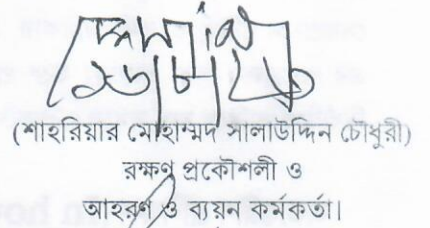 (শাহরিয়ার মোহাম্মদ সালাউদ্দিন চৌধুরী)
রক্ষণ প্রকৌশলী ও
আহরণ ও ব্যয়ন কর্মকর্তা।